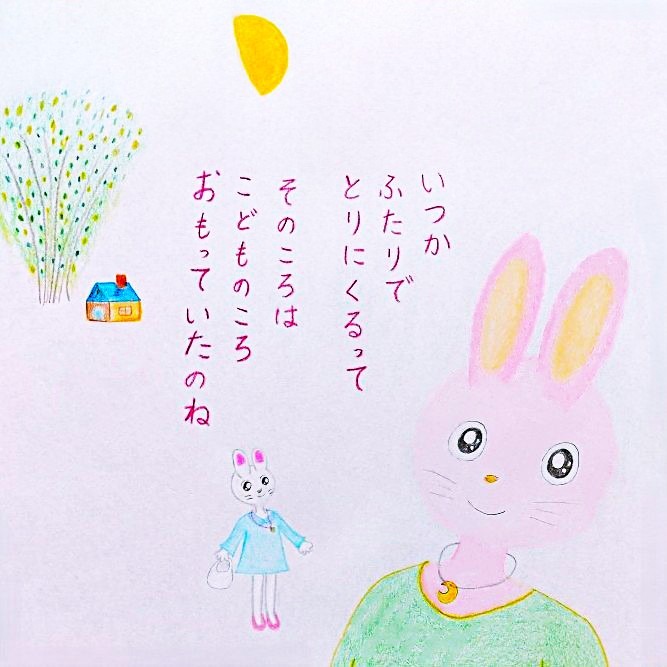 いつか
ふたりで
とりにくるって
そのころは
こどものころ
おもっていたのね